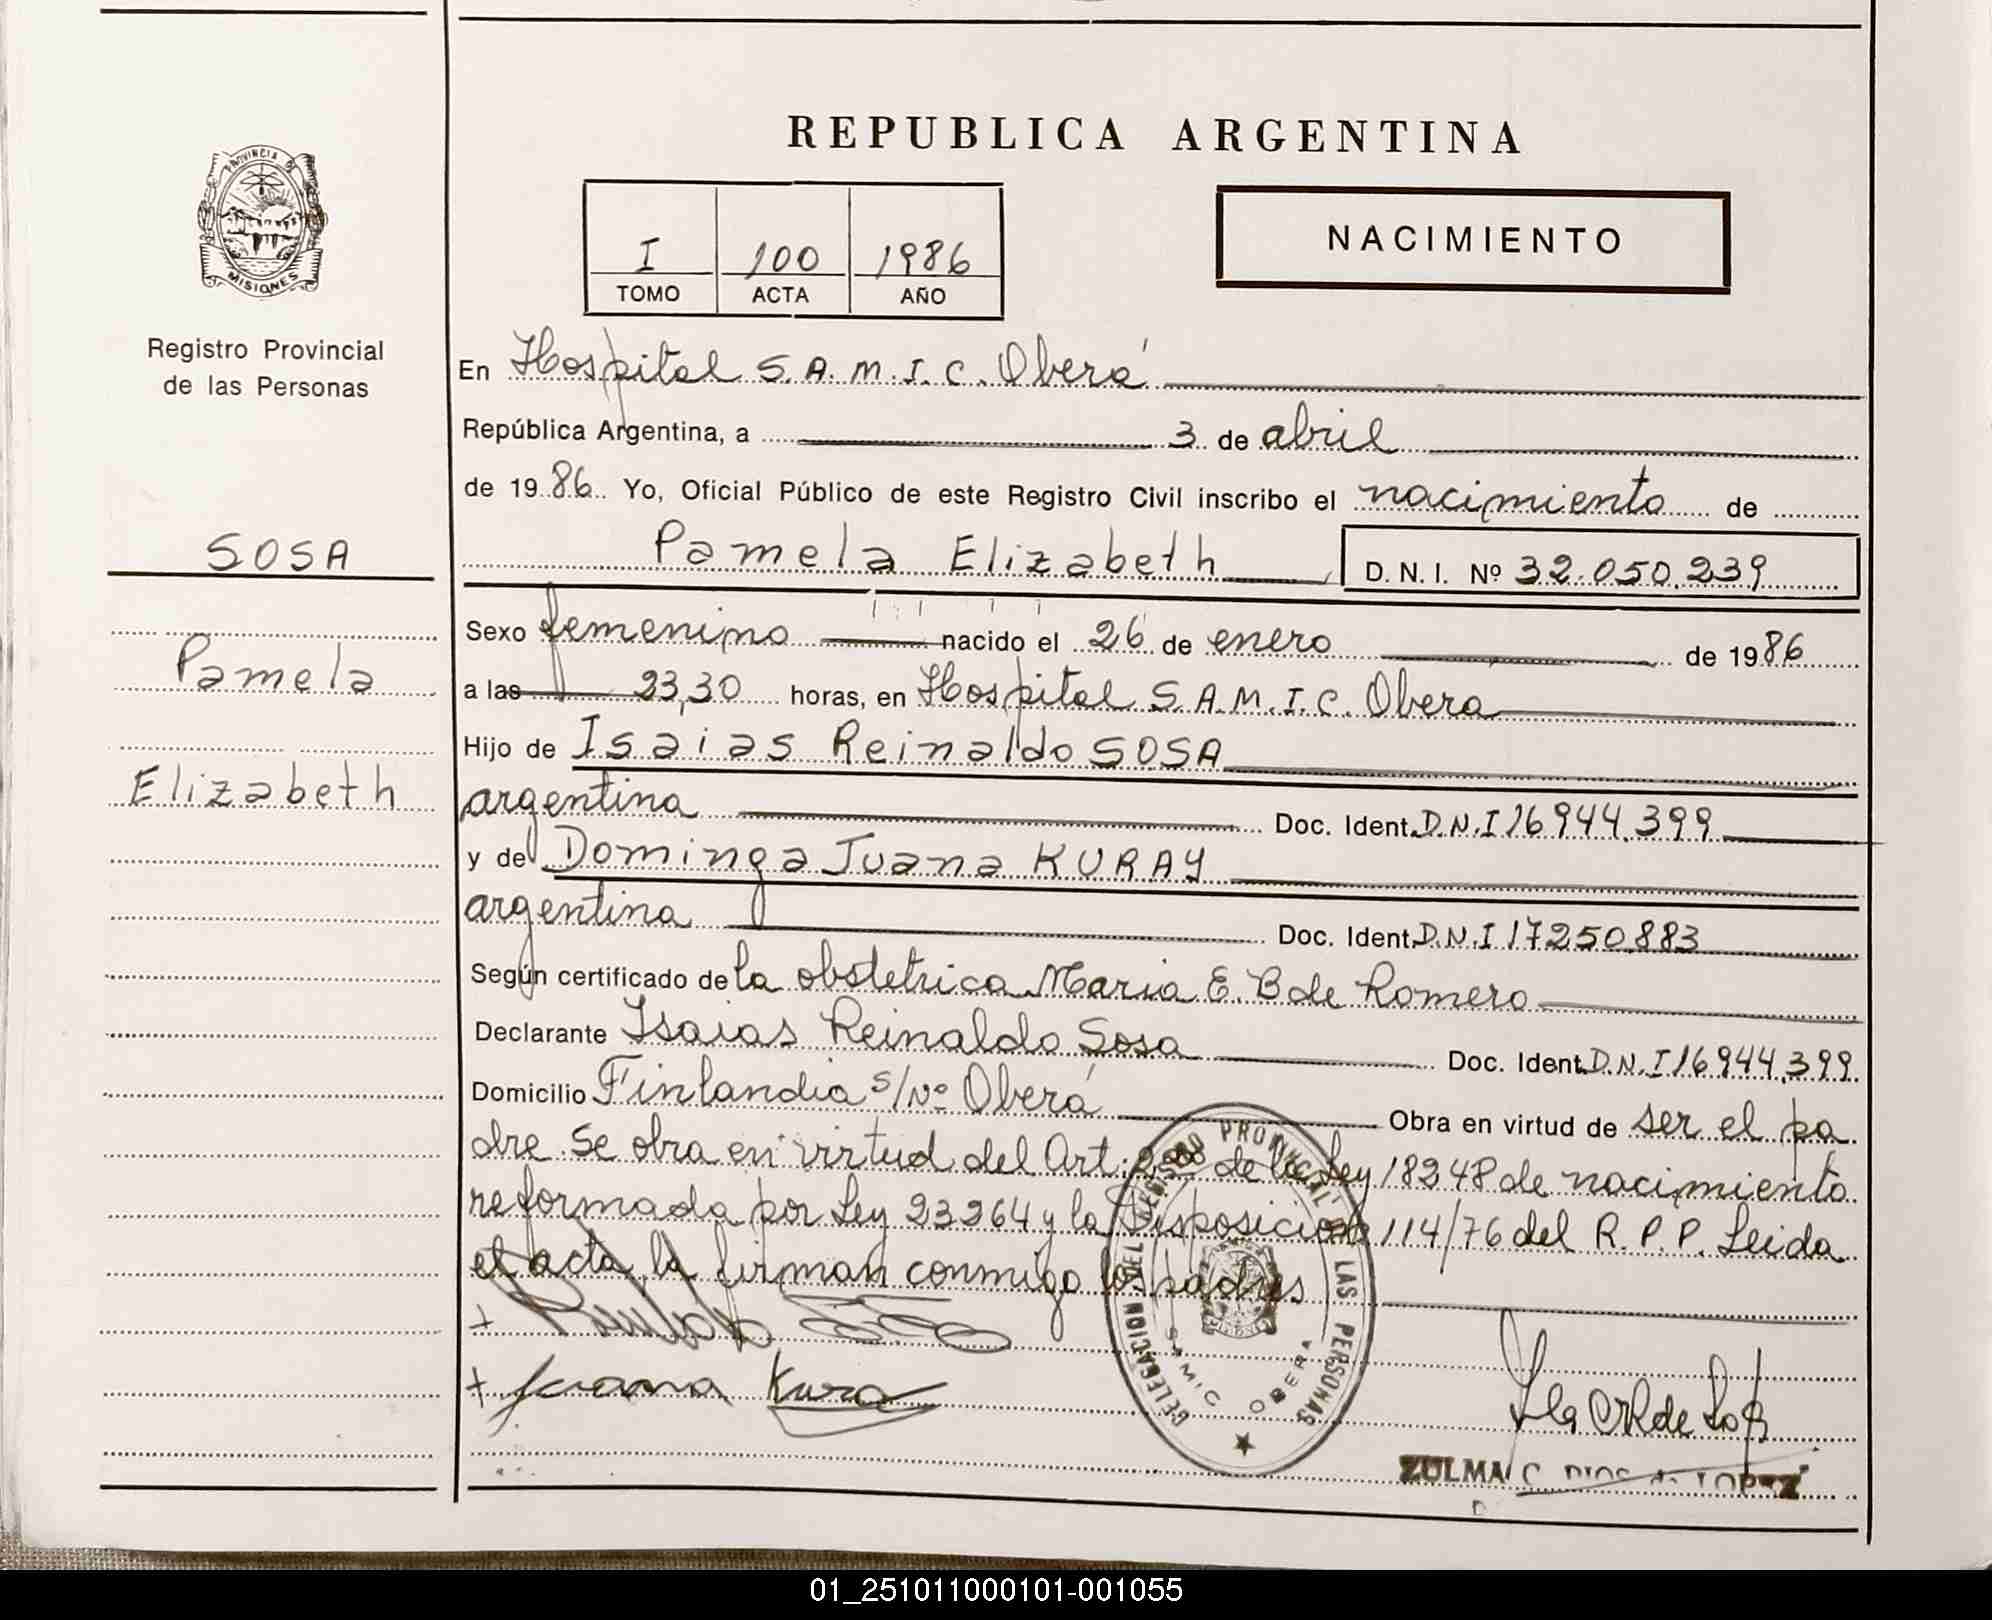 REPUBLICA ARGENTINA
PROVINCIA DE MISIONES
Registro Provincial
de las Personas
SOSA
Pamela
Elizabeth
I 100 1986
TOMO ACTA AÑO
NACIMIENTO
En Hospital S.A.M.I.C. Oberá
República Argentina, a 3 de abril
de 1986 Yo, Oficial Público de este Registro Civil inscribo el nacimiento de
Pamela Elizabeth D.N.I. Nº 32.050.239
Sexo femenino nacido el 26 de enero de 1986
a las 23,30 horas, en Hospital S.A.M.I.C. Obera
Hijo de Isaias Reinaldo SOSA
argentina Doc. Ident. D.N.I 16944.399
y de Dominga Juana KURAY
argentina Doc. Ident. D.N.I 17250.883
Según certificado de la obstetrica Maria E. B de Romero
Declarante Isaias Reinaldo Sosa Doc. Ident. D.N.I 16944.399
Domicilio Finlandia s/Nº Oberá Obra en virtud de ser el pa
dre. Se obra en virtud del Art. de la Ley 18248 de nacimiento
reformada por Ley 23264 y la Disposicion 114/76 del R.P.P. Leida
el acta, la firman conmigo los padres
+ Reinaldo
+ Juana Kura
DELEGACION DEL REGISTRO PROVINCIAL DE LAS PERSONAS
SAMIC OBERA
ZULMA C. LOPEZ
01_251011000101-001055